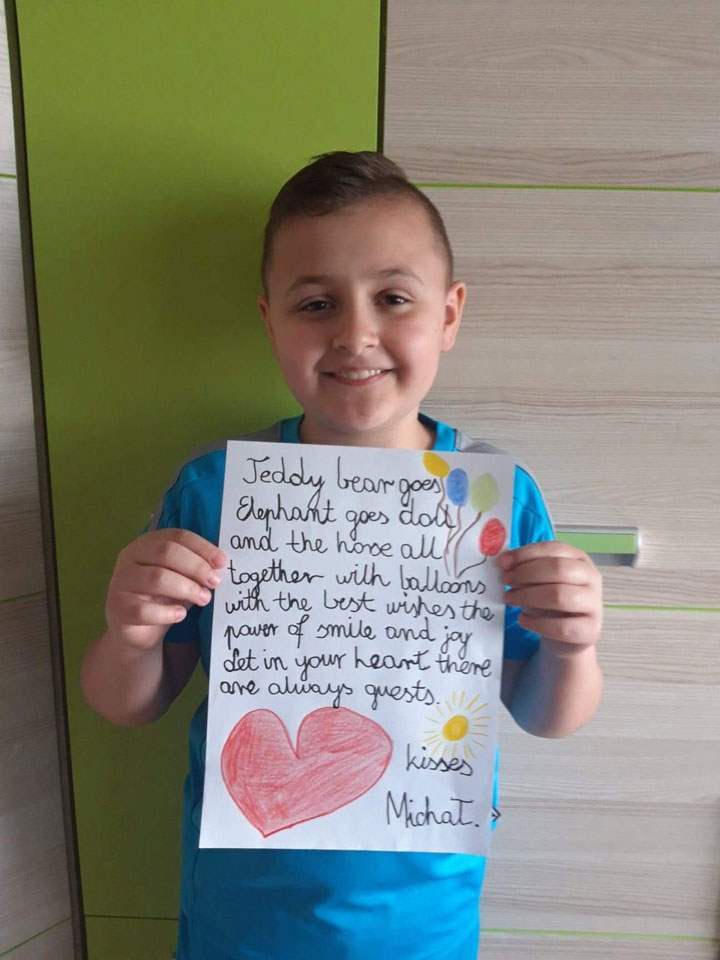 Teddy bear goes
Elephant goes doll
and the horse all
together with balloons
with the best wishes the
power of smile and joy
Let in your heart there
are always guests.
kisses
Michał.